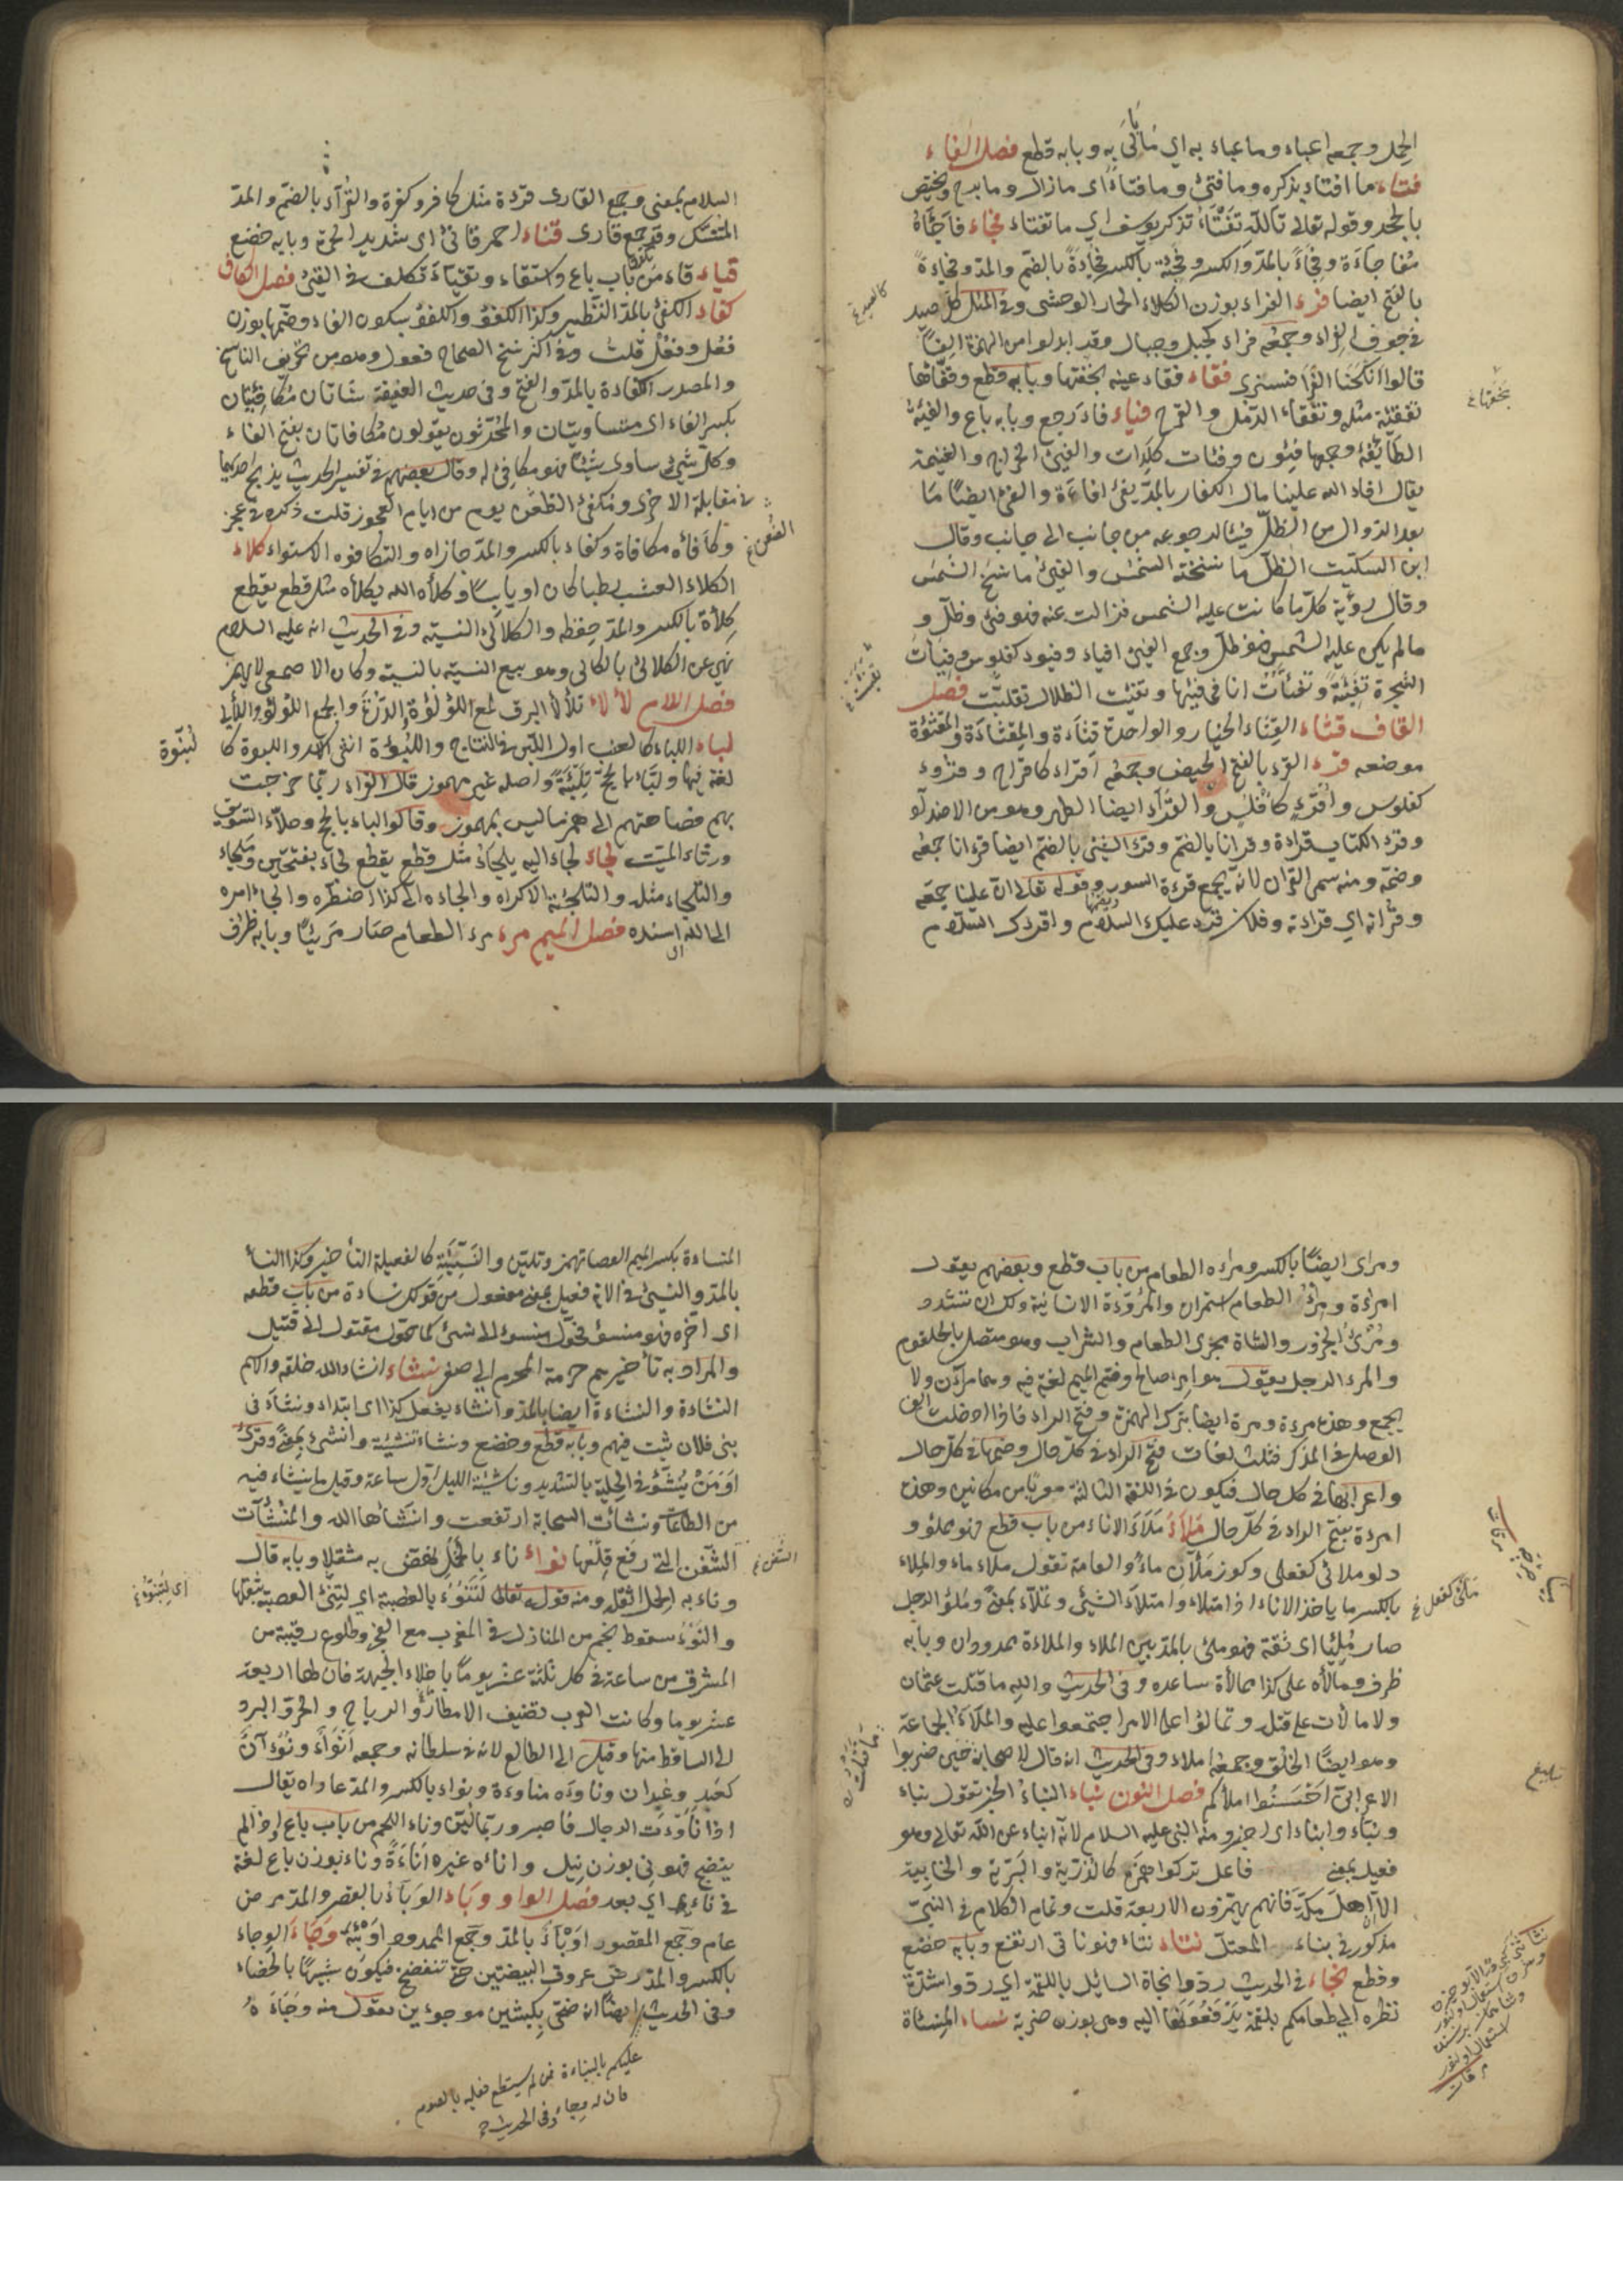 الحمل وجمعه اعباء وما عباء به اي ما بالى به وبابه قطع فصل الفاء
فتاء ما افتاء يذكره وما فتئ وما فتاء اى ما زال وما برح ويختص
بالجحد وقوله تعالى تالله تفتاء تذكر يوسف اي ما تفتاء فجاء فاجأه
مفاجاءة وفجاءً بالمد والكسر وفجئه بالكسر فجاءة بالضم والمد وفجاءة
بالفتح ايضا فرء الفراء بوزن الكلاء الحمار الوحشى وفى المثل كل صيد
فى جوف الفراء وجمعه فراء كجبل وجبال وقد ابدلوا من الهمزة الفاً
قالوا انكحنا الفرا فسنرى فقاء فقاء عينه بخقها وبابه قطع وفقّأها
تفقئة مثله وتفقاء الدمل والقرح فياء فاء رجع وبابه باع والفيئة
الطائفة وجمها فيئون وفئات كلدات والفيئ الخراج والغنيمة
يقال افاء الله علينا مال الكفار بالمد يفئ افاءة والفئ ايضاً ما
بعد الزوال من الظلّ فيئا لرجوعه من جانب الى جانب وقال
ابن السكيت الظلّ ما نسخته الشمس والفيئ ما نسخ الشمس
وقال رؤبة كلّ ما كانت عليه الشمس فزالت عنه فهو فئ وظلّ و
مالم يكن عليه الشمس فهو ظل وجمع الفيئ افياء وفيوء كفلوس وفيأت
الشجرة تفيئة وتفيّأت انا فى فيئها وتفيّئت الظلال تقلبّت فصل
القاف قثاء القثاء الخيار والواحدة قثاءة والمقثاءة والمقثؤة
موضعه قرء القرء بالفتح الحيض وجمعه اقراء كافراح وقروء
كفلوس واقرء كافلس والقرء ايضا الطهر وهو من الاضداد
وقرء الكتاب قراءة وقرانا بالضم وقرء الشئ بالضم ايضا قرءانا جمعه
وضمه ومنه سمى القران لانه يجمع السور ويضمها وقوله تعالى ان علينا جمعه
وقرآنه اي قراءته وفلان قرء عليك السلام واقرءك السلام
كالصيد
بخقها
السلام بمعنى وجمع القارى قرءة مثل كافر وكفرة والقرآء بالضم والمد
المتنسك وقد جمع قارئ قناء احمر قانئ اى شديد الحمرة وبابه خضع
قياء قاء من باب باع واستقاء وتقيّاء تكلف فى القيئ فصل الكاف
كفاء الكفئ بالمد النظير وكذا الكفؤ والكفؤ بسكون الفاء وضمها بوزن
فعل وفعل قلت وفى اكثر نسخ الصحاح فعول وهو من تحريف الناسخ
والمصدر الكفاءة بالمد والفتح وفى حديث العقيقة شاتان مكافئتان
بكسر الفاء اى متساويتان والمحدّثون يقولون مكافاتان بفتح الفاء
وكل شئ ساوى شيئاً فهو مكافئ له وقال بعضهم فى تفسير الحديث يذبح احديهما
فى مقابلة الاخرى ومكفئ الظعن يوم من ايام العجوز قلت ذكره فى عجز
وكافأه مكافاة وكفاء بالكسر والمد جازاه والتكافوء الاستواء كلاء
الكلاء العشب رطبا كان او يابساً وكلأه الله يكلأه مثل قطع يقطع
كلأة بالكسر والمد حفظه والكلائ النسيّة وفى الحديث انه عليه السلام
نهى عن الكلائ بالكالى وهو بيع النسيّة بالنسيّة وكان الاصمعى لا يهمز
فصل اللام لألاء تلألأ البرق لمع اللؤلؤة الدرّة والجمع اللؤلؤ واللآلى
لباء اللباء كالعنب اول اللبن فى النتاج واللبوءة انثى الاسد واللبوة
لغة فيها ولبّاء بالحج تلبئة واصله غير مهموز قال الفراء ربّما خرجت
بهم فصاحتهم الى همز ما ليس بمهموز وقالوا لباء بالحج وحلأ السويق
ورثاء الميت لجاء لجاء اليه يلجاء مثل قطع يقطع لجاء بفتحتين وملجاء
والتلجاء مثله والتلجئة الاكراه والجاءه الى كذا اضطره والجاء امره
الى الله اسنده فصل الميم مرء مرء الطعام صار مريئاً وبابه ظرف
الظعن
لبوة
ومرئ ايضاً بالكسر ومراءه الطعام من باب قطع وبعضهم يقول
امراءه الطعام استمراه والمروءة الانسانية ولك ان تشدد
ومرئ الجزور والشاة مجرى الطعام والشراب وهو متصل بالحلقوم
والمرء الرجل يقول هو امرء صالح وفتح الميم لغة فيه وهما مرآن ولا
يجمع وهذه مرءة ومرة ايضا بترك الهمزة وفتح الراء فاذا ادخلت الف
الوصل فى المذكر فثلث لغات فتح الراء فى كل حال وضمها فى كل حال
واعرابها فى كل حال فيكون فى اللغة الثالثة معربا من مكانين وهذه
امرءة بفتح الراء فى كل حال ملاء ملاء الاناء من باب قطع فهو مملوّ و
دلو ملائ كفعلى وكوز ملآن ماءً والعامة تقول ملاء ماء والملاء
بالكسر ما ياخذ الاناء اذا امتلاء وامتلاء الشيئ وتملّاء بمعنى وملؤ الرجل
صار مليئا اى ثقة فهو ملئ بالمد بيّن الملاء والملاءة ممدودان وبابه
ظرف ومالأه على كذا ممالأة ساعده وفى الحديث والله ما قتلت عثمان
ولا مالأت على قتله وتمالؤا على الامر اجتمعوا عليه والملاء الجماعة
وهو ايضاً الخلق وجمعه املاء وفى الحديث انه قال لاصحابه حين ضربوا
الاعرابى احسنوا املاكم فصل النون نباء النباء الخبر تقول نباء
ونبّاء وانباء اى اخبر ومنه النبى عليه السلام لانه انباء عن الله تعالى وهو
فعيل بمعنى فاعل تركوا همزه كالذرية والبرية والخابية
الا اهل مكة فانهم يهمزون الاربعة قلت وتمام الكلام فى النبى
مذكور فى بناء المعتل نتاء نتاء فهو ناتى ارتفع وبابه خضع
وقطع نجاء فى الحديث ردّوا نجاة السائل باللقمة اي ردوا شدّة
نظره الى طعامكم بلقمة تدفعونها اليه وهى بوزن ضربة نساء المنساة
ملئى كفعلى
ما قتلت
بلغ
المنساءة بكسر الميم العصا تهمز وتليّن والنسيئة كالفعيلة التأخير وكذا النسأ
بالمد والنسئ فى الاية فعيل بمعنى مفعول من قولك نساءه من باب قطعه
اى اخّره فهو منسوء فحوّل منسوء الى نسئ كما حوّل مقتول الى قتيل
والمراد به تأخيرهم حرمة المحرم الى صفر نشاء انشاء الله خلقه والاسم
النشاءة والنشاءة ايضا بالمد وانشاء يفعل كذا اى ابتداء ونشاء فى
بنى فلان شبّ فيهم وبابه قطع وخضع ونشاء تنشئة وانشئ بمعنى وقرئ
اومن ينشّؤ فى الحلية بالتشديد وناشئة الليل اول ساعة وقيل ما ينشاء فيه
من الطاعات ونشأت السحابة ارتفعت وانشأها الله والمنشآت
السفن التى رفع قلعها نواء ناء بالحمل نهض به مثقلا وبابه قال
وناء به الحمل اثقله ومنه قوله تعالى لتنوء بالعصبة اي لتنئ العصبة بثقلها
والنوء سقوط نجم من المنازل فى المغرب مع الفجر وطلوع رقيبه من
المشرق من ساعته فى كل ثلثة عشر يوماً ما خلا الجبهة فان لها اربعة
عشر يوما وكانت العرب تضيف الامطار والرياح والحر والبرد
الى الساقط منها وقيل الى الطالع لانه فى سلطانه وجمعه انواء ونوءآن
كعبد وعبدان وناواه مناوءة ونواء بالكسر والمد عاداه يقال
اذا ناوءت الرجال فاصبر وربّما ليّن وناء اللحم من باب باع اذا لم
ينضج فهو نئ بوزن نيل واناءه غيره اناءة وناء بوزن باع لغة
فى نأى اى بعد فصل الواو وباء الوباء بالقصر والمد مرض
عام وجمع المقصور اوباء بالمد وجمع الممدود اوبئة وجاء الوجاء
بالكسر والمد رضّ عروق البيضتين حتى تنفضخ فيكون شبيها بالخصاء
وفى الحديث ايضاً انه ضحّى بكبشين موجوءين يقول منه وجاءه
السفن
اى لتنوء
عليكم بالباءة فمن لم يستطع فعليه بالصوم
فان له وجاء وفى الحديث